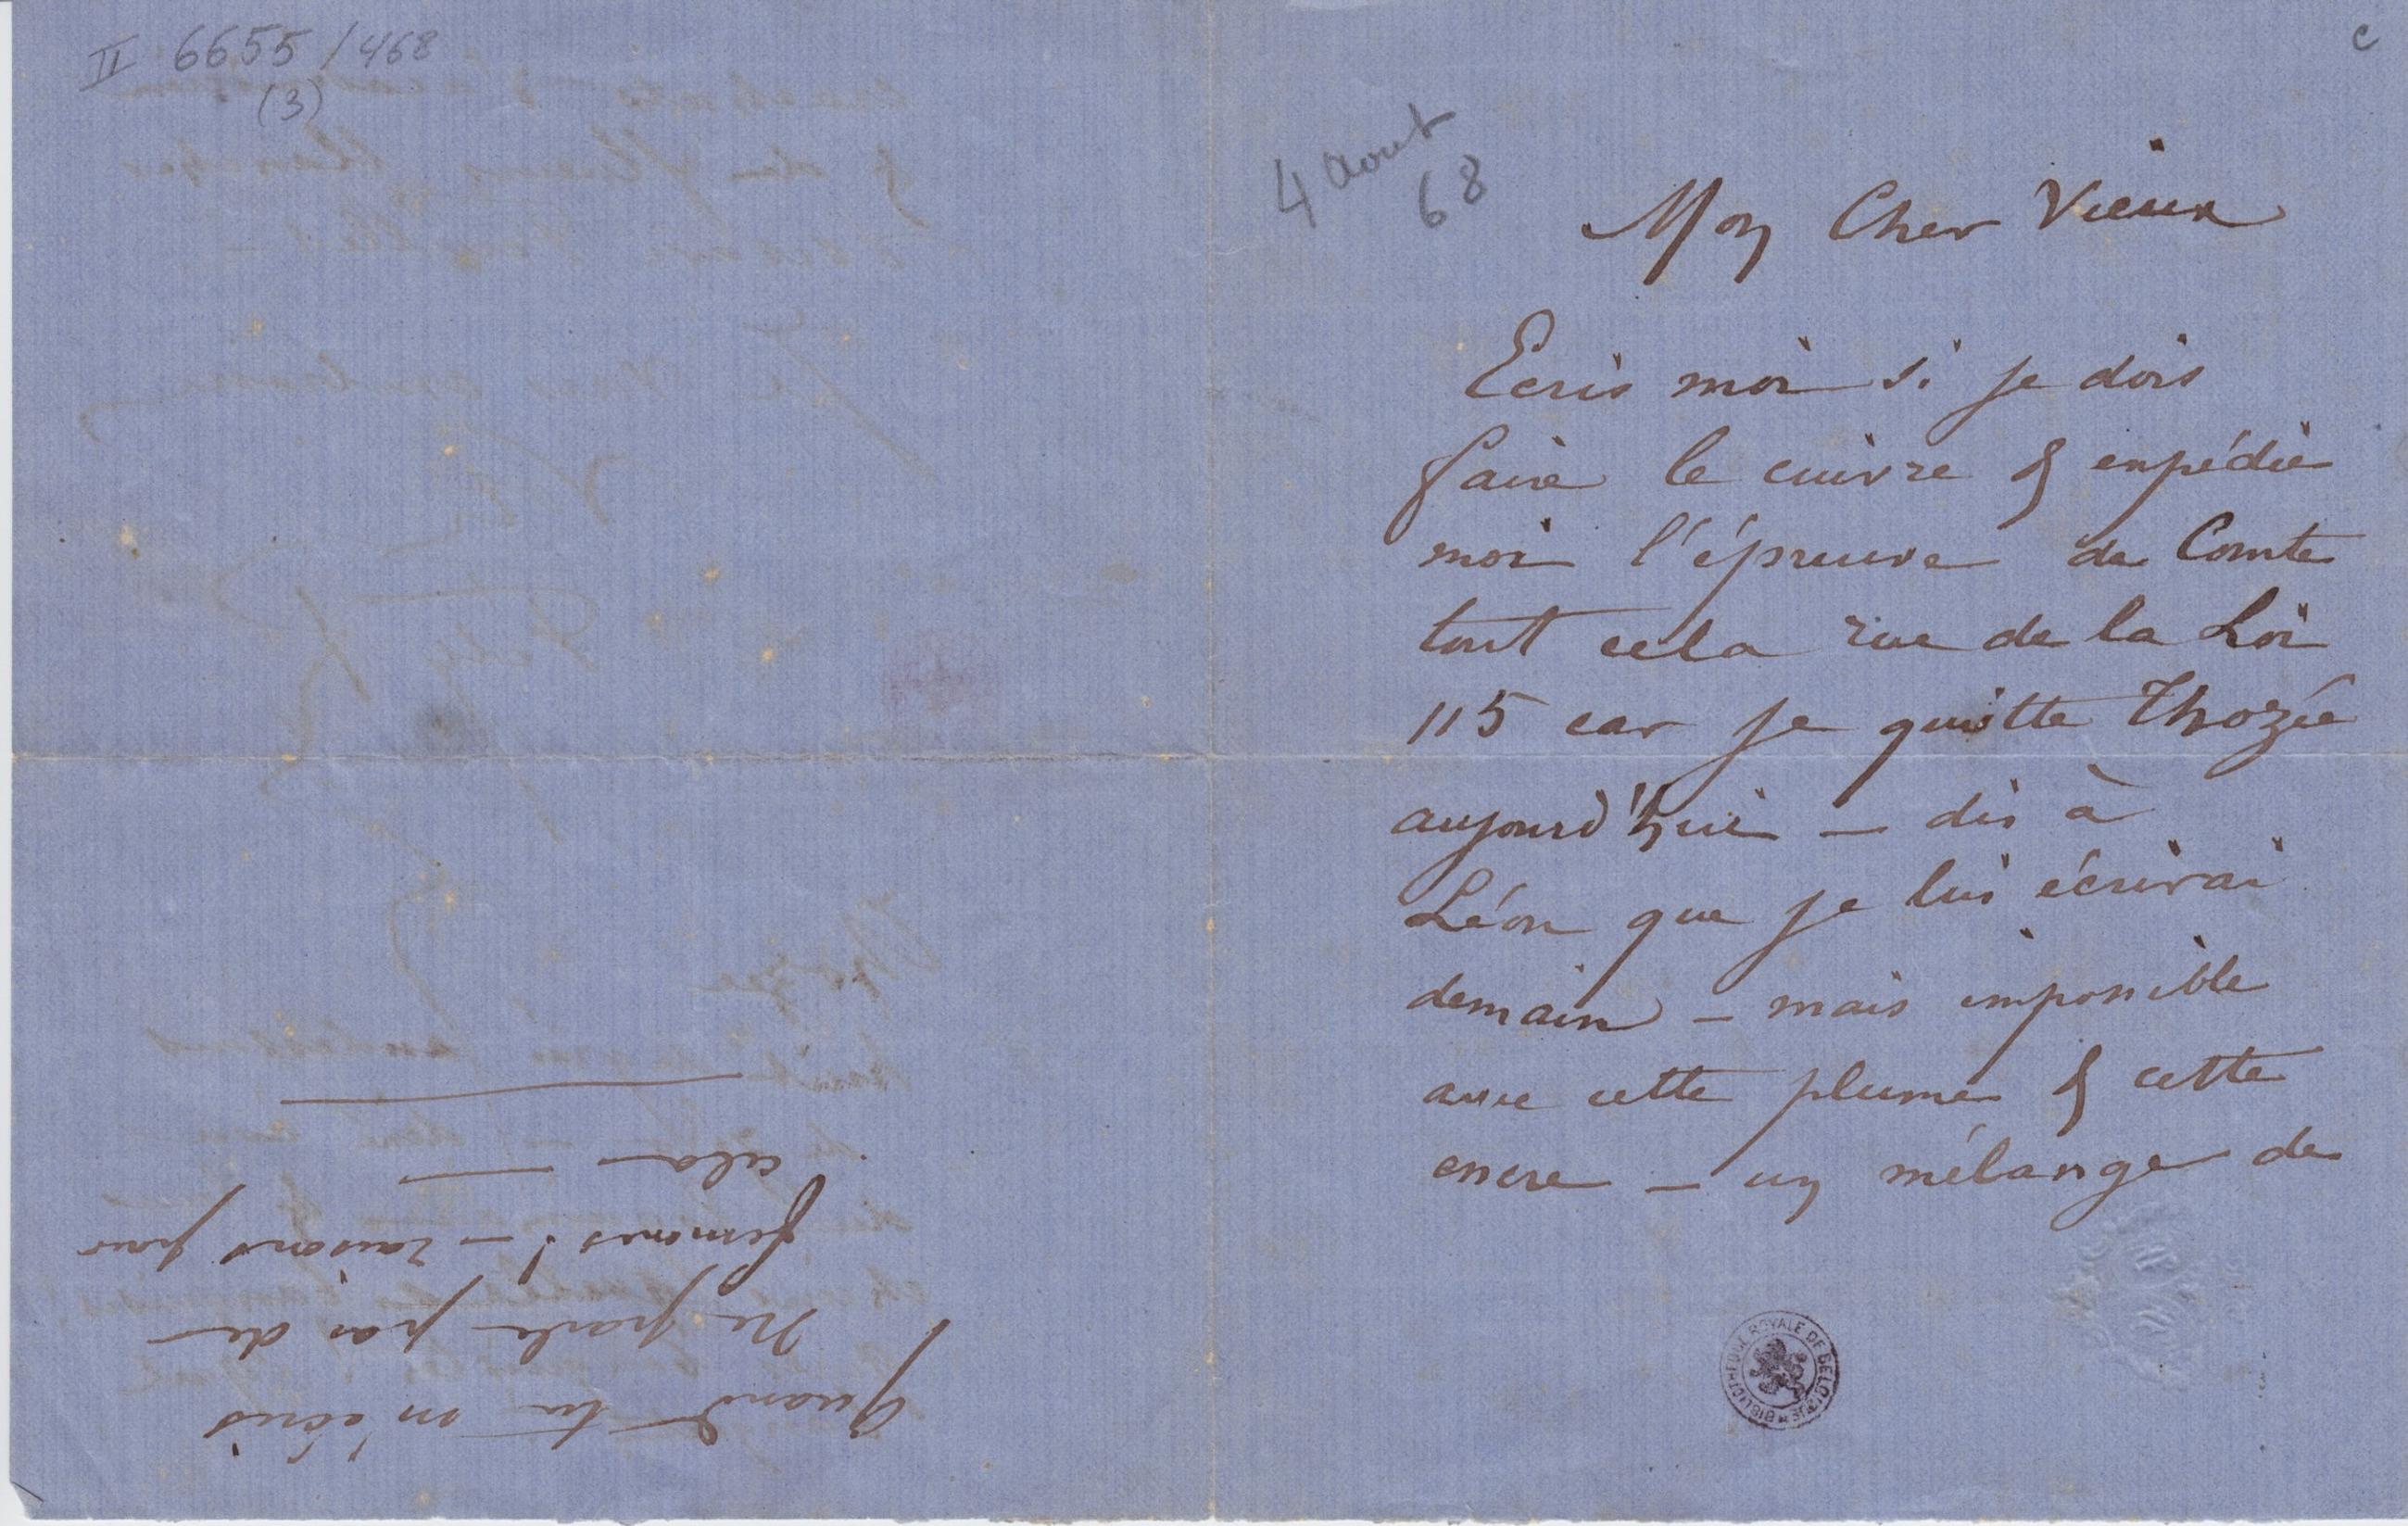 II 6655/468
(3)
c
4 Aout
68
Mon Cher Vieux
Ecris moi si je dois
faire le cuivre & expédie
moi l'épreuve de Comte
tout cela rue de la Loi
115 car je quitte Thozée
aujourd'hui – dis à
Léon que je lui écrirai
demain – mais impossible
avec cette plume & cette
encre – un mélange de
BIBLIOTHEQUE ROYALE DE BELGIQUE
Quand tu m'écris
Ne parle pas de
femmes ! – raisons pour
cela –